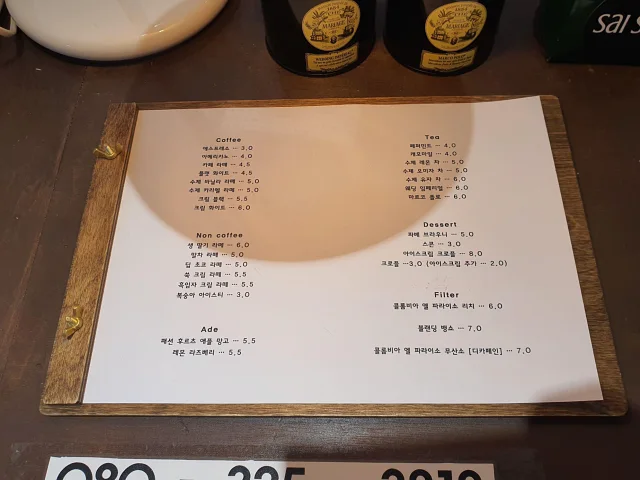 MARIAGE
MARIAGE
SAI S
Coffee
에스프레소 ··· 3,0
아메리카노 ··· 4,0
카페 라떼 ··· 4,5
플랫 화이트 ··· 4,5
수제 바닐라 라떼 ··· 5,0
수제 카라멜 라떼 ··· 5,0
크림 블랙 ··· 5,5
크림 화이트 ··· 6,0
Non coffee
생 딸기 라떼 ··· 6,0
말차 라떼 ··· 5,0
딥 초코 라떼 ··· 5,0
쑥 크림 라떼 ··· 5,5
흑임자 크림 라떼 ··· 5,5
복숭아 아이스티 ··· 3,0
Ade
패션 후르츠 애플 망고 ··· 5,5
레몬 라즈베리 ··· 5,5
Tea
페퍼민트 ··· 4,0
캐모마일 ··· 4,0
수제 레몬 차 ··· 5,0
수제 오미자 차 ··· 5,0
수제 유자 차 ··· 6,0
웨딩 임페리얼 ··· 6,0
마르코 폴로 ··· 6,0
Dessert
꾸떼 브라우니 ··· 5,0
스콘 ··· 3,0
아이스크림 크로플 ··· 8,0
크로플 ···3,0 (아이스크림 추가 ··· 2,0)
Filter
콜롬비아 엘 파라이소 리치 ··· 6,0
블랜딩 뱅쇼 ··· 7,0
콜롬비아 엘 파라이소 무산소 [디카페인] ··· 7,0